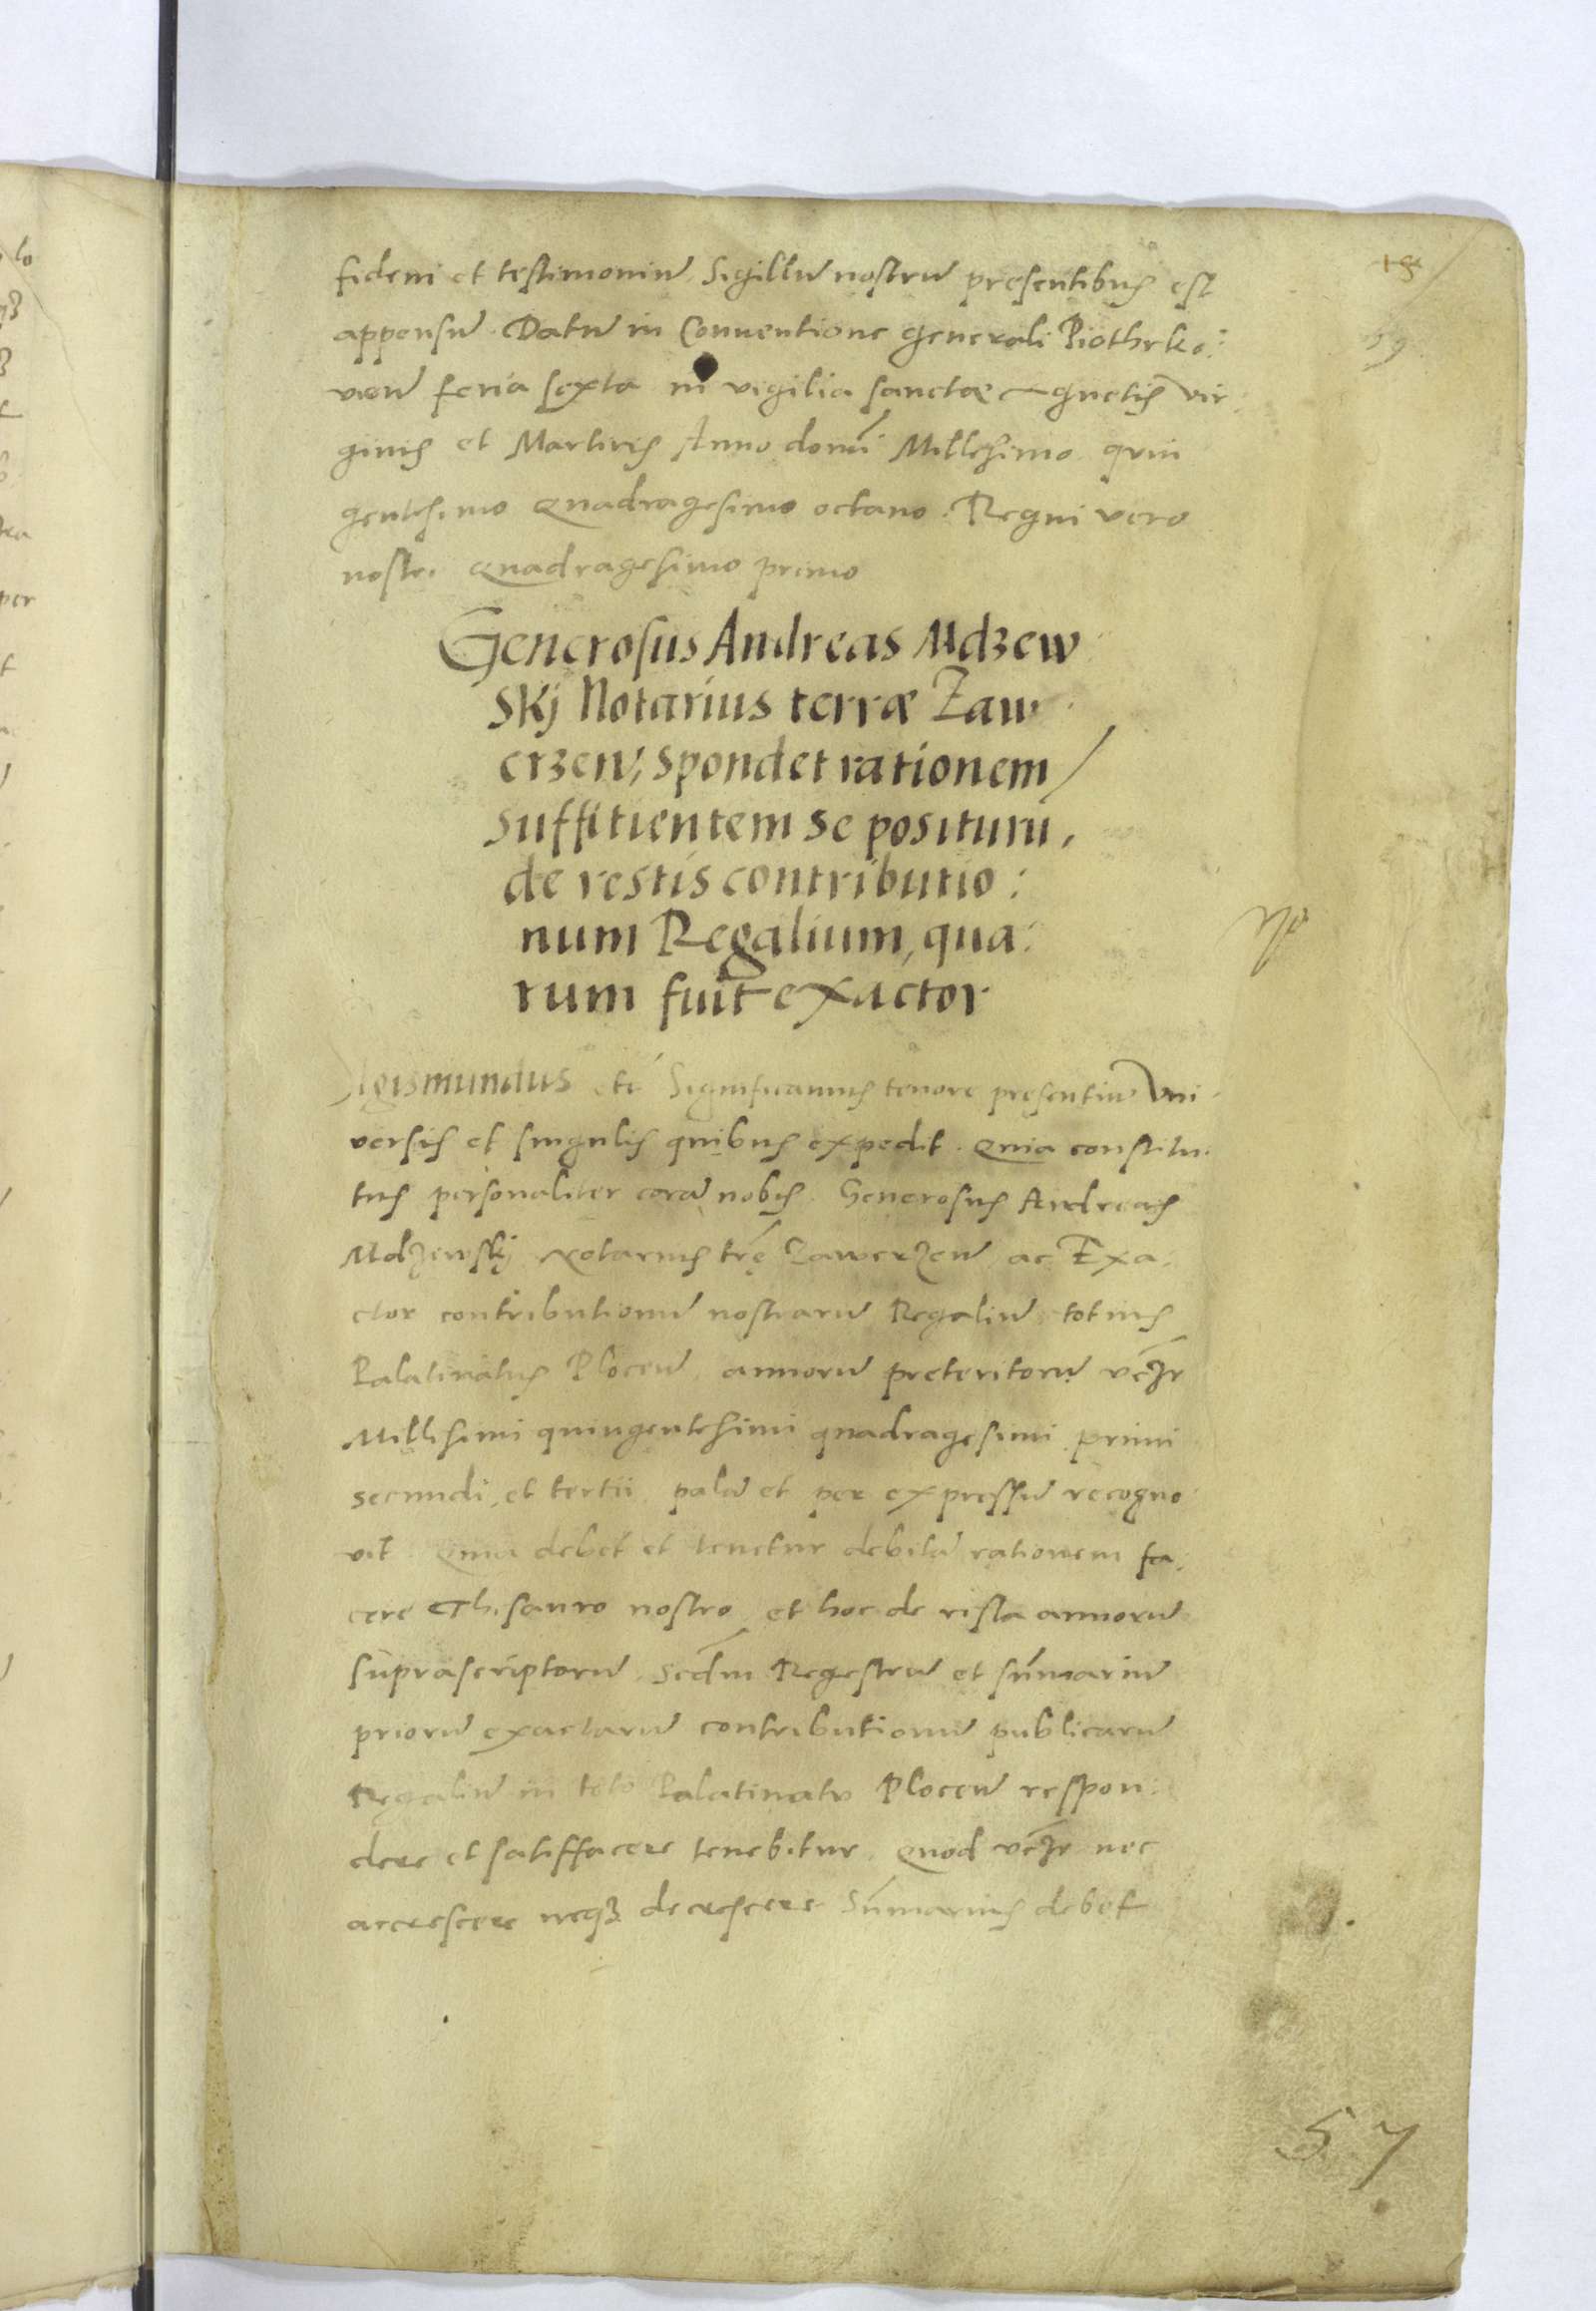 fidem et testimoniū Sigillū nostrū presentibus est
appensū. Datū in Conventione generali Piothrko:
vien̄ feria sexta in vigilia sanctæ Agnetis vir:
ginis et Martiris Anno domī Millesimo quin
gentesimo Quadragesimo octavo. Regni vero
nostri Quadragesimo primo
Generosus Andreas Mdzew
skij Notarius terræ Zaw
erzen̄, spondet rationem
suffitientem se positurū,
de restis contributio:
num Regalium, qua:
rum fuit exactor
Sigismundus etc̄ Significamus tenore presentiū Vni
versis et singulis quibus expedit. Quia constitu.
tus personaliter corā nobis. Generosus Andreas
Mdzewskij Notarius trę̄ Zawerzen̄ ac Exa.
ctor contributionū nostrarū Regaliū totius
Palatinatus Plocen̄, annorū preteritorū vczr̄
Millesimi quingentesimi quadragesimi primi
secundi, et tertii, palā et per expressū recogno
vit. Quia debet et tenetur debitā rationem fa.
cere Thesauro nostro, et hoc de resta annorū
suprascriptorū. Secd̄m Regestrū et sum̄ariū
priorū exactarū contributionū publicarū
Regaliū in toto Palatinatu Plocen̄ respon:
dere et satisffacere tenebitur. Quod vczr̄ nec
accrescere neqȝ decrescere Sum̄arius debet
57